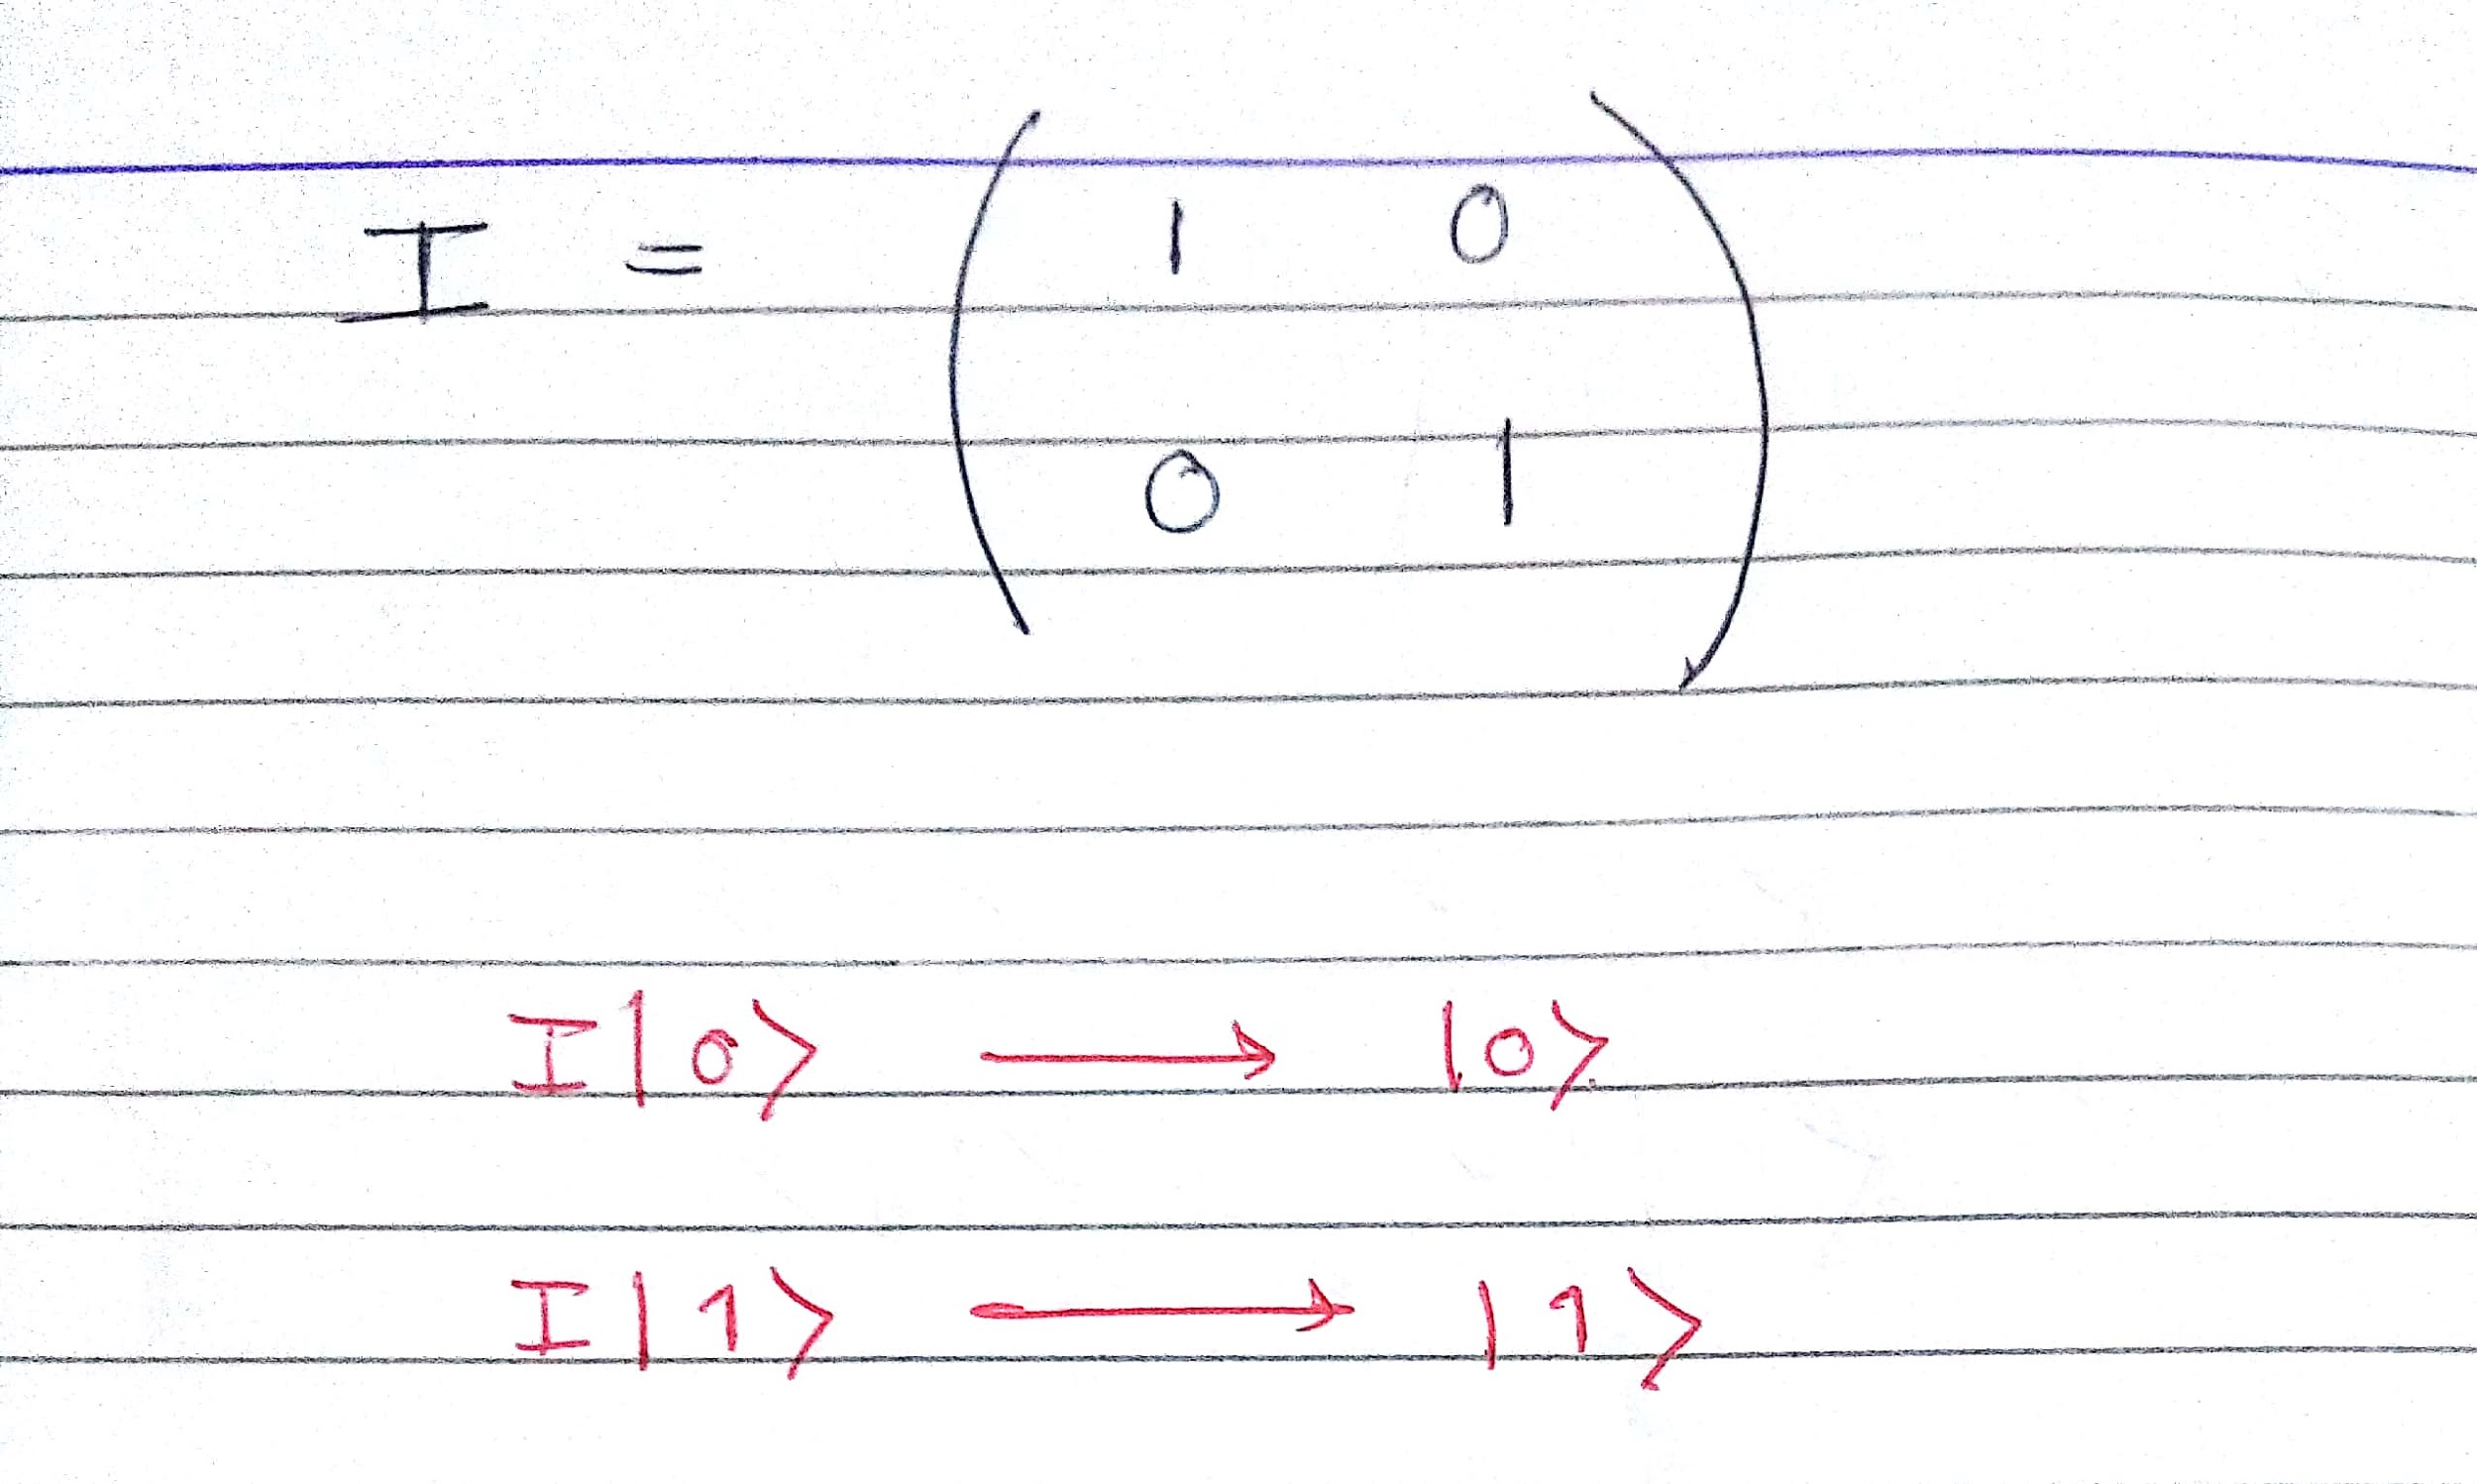 I = ( 1 0
0 1 )
I|0⟩ → |0⟩
I|1⟩ → |1⟩